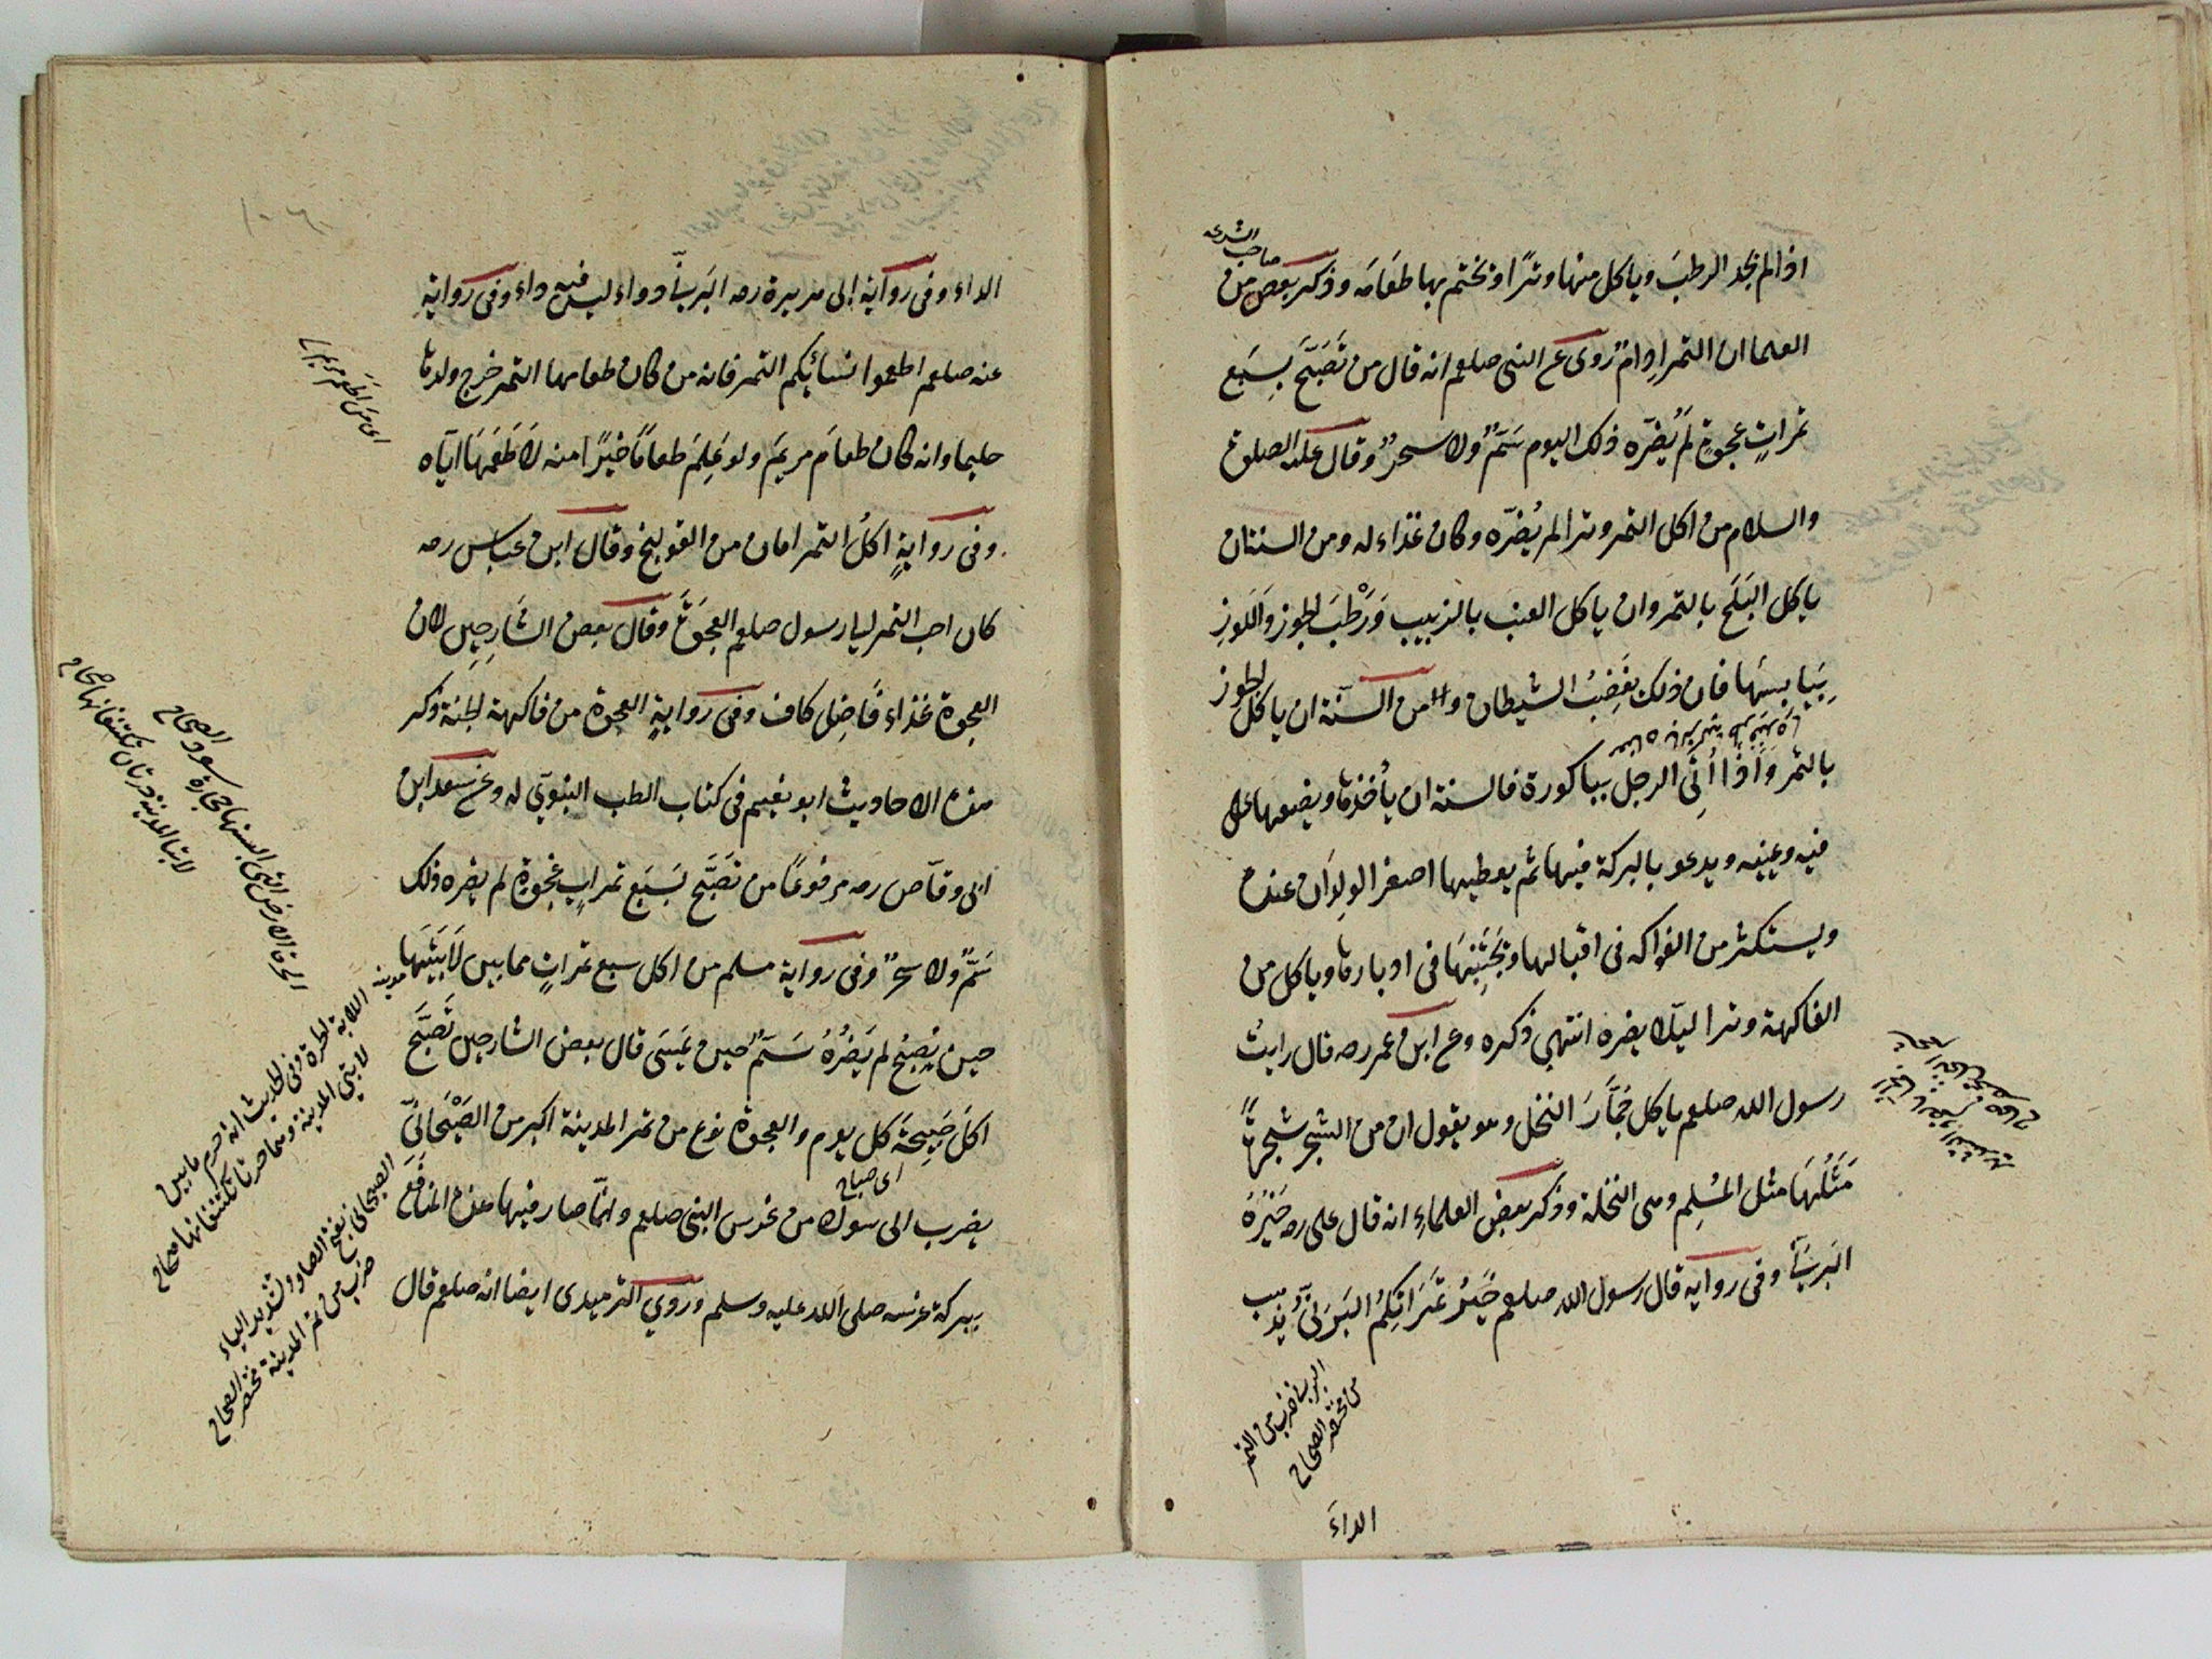 صاحب الشرعه
اذا لم يجد الرطب وياكل منها وترًا ويختم بها طعامَه وذكر بعض من
العلما ان التمر ادام روى عن النبى صلعم انه قال من تَصَبَّحَ بِسَبعِ
تمراتٍ عجوةٍ لم يُضرّه ذلك اليوم سَمٌّ ولا سحرٌ وقال عليه الصلوة
والسلام من اكل التمر وترا لم يُضرّه وكان غذاء له ومن السنة ان
ياكل البَلَح بالتمر وان ياكل العنب بالزبيب وَرَطْبَ الجوز وَاللَوزِ
بِيَابِسِهَا فان ذلك يُغضِبُ الشيطان ومن السنّة ان ياكل الجوز
بالتمر وَاذا اُتِىَ الرجل بباكورة فالسنة ان يأخذها ويضعها على
فيه وعينيه ويدعو بالبركة فيها ثم يعطيها اصغر الولدان عنده
ويستكثر من الفواكه فى اقبالها ويَجتَنِبَهَا فى ادبارها وياكل من
الفاكهة وترا ليلّا يضره انتهى ذكره وعن ابن عمر رضه قال رايتُ
رسول الله صلعم ياكل جُمَّارَ النخل وهو يقول ان من الشجر شجرةً
مَثَلُهَا مثل المُسْلِم وهى النخلة وذكر بعض العلماءِ انه قال على رضه خَيْرُهُ
البَرنِىّ وفى رواية قال رسول الله صلعم خَيْرُ تَمَرَاتِكُم البَرنِىّ يُذهِب
البرنى ضرب من التمر
من مختصر الصحاح
الداءَ
الداء وفى رواية ابى هريرة رضه البَرنِىّ دواء ليس فيه داء وفى رواية
عنه صلعم اطعموا نسائَكم التمر فانه من كان طعامها التمر خرج ولدها
حليما وانه كان طعامَ مريمَ ولو عَلِمَ طعامًا خيرًا منه لَاَطعَمَهَا اياه
وفى روايةٍ اكلُ التمر امان من القولنج وقال ابن عباس رضه
كان احب التمر الى رسول صلعم العجوَة وقال بعض الشَارِحِين لان
العجوة غذاء فَاضِل كاف وفى روايةٍ العجوة من فاكهة الجنة ذكر
هذه الاحاديث ابو نعيم فى كتاب الطب النبوىّ له وعن سعد ابن
ابى وقّاص رضه مرفوعًا من تَصَبَّح بسَبَع تمراتٍ عجوةٍ لم يضره ذلك
سَمٌّ ولا سحرٌ وفى رواية مسلم من اكل سبع تمراتٍ مما بين لَابَتَيهَا
حين يُصبِحُ لم يَضُرّهُ سَمٌّ حين يُمسِى قال بعض الشارحين تَصَبَّح
اكَلَ صَبِيحَة كل يوم والعجوة نوع من تمر المدينة اكبر من الصَيْحَانِىّ
اى صباح
يضرب الى سواد من غرس النبى صلعم وانّما صار فيها هذه المنَافِع
ببركة غرسه صلى الله عليه وسلم وروى الترميدى ايضا انه صلعم قال
الحرة الارض التى البسها حجارة سود صحاح
لابتا المدينة حرتان تكتنفانها صحاح
اللابة الحرة وفى الحديث انه حرم ما بين
لابتى المدينة وهما حرتان تكتنفانها صحاح
الصيحانى بفتح الصاد والتشديد الياء
ضرب من تمر المدينة مختصر الصحاح